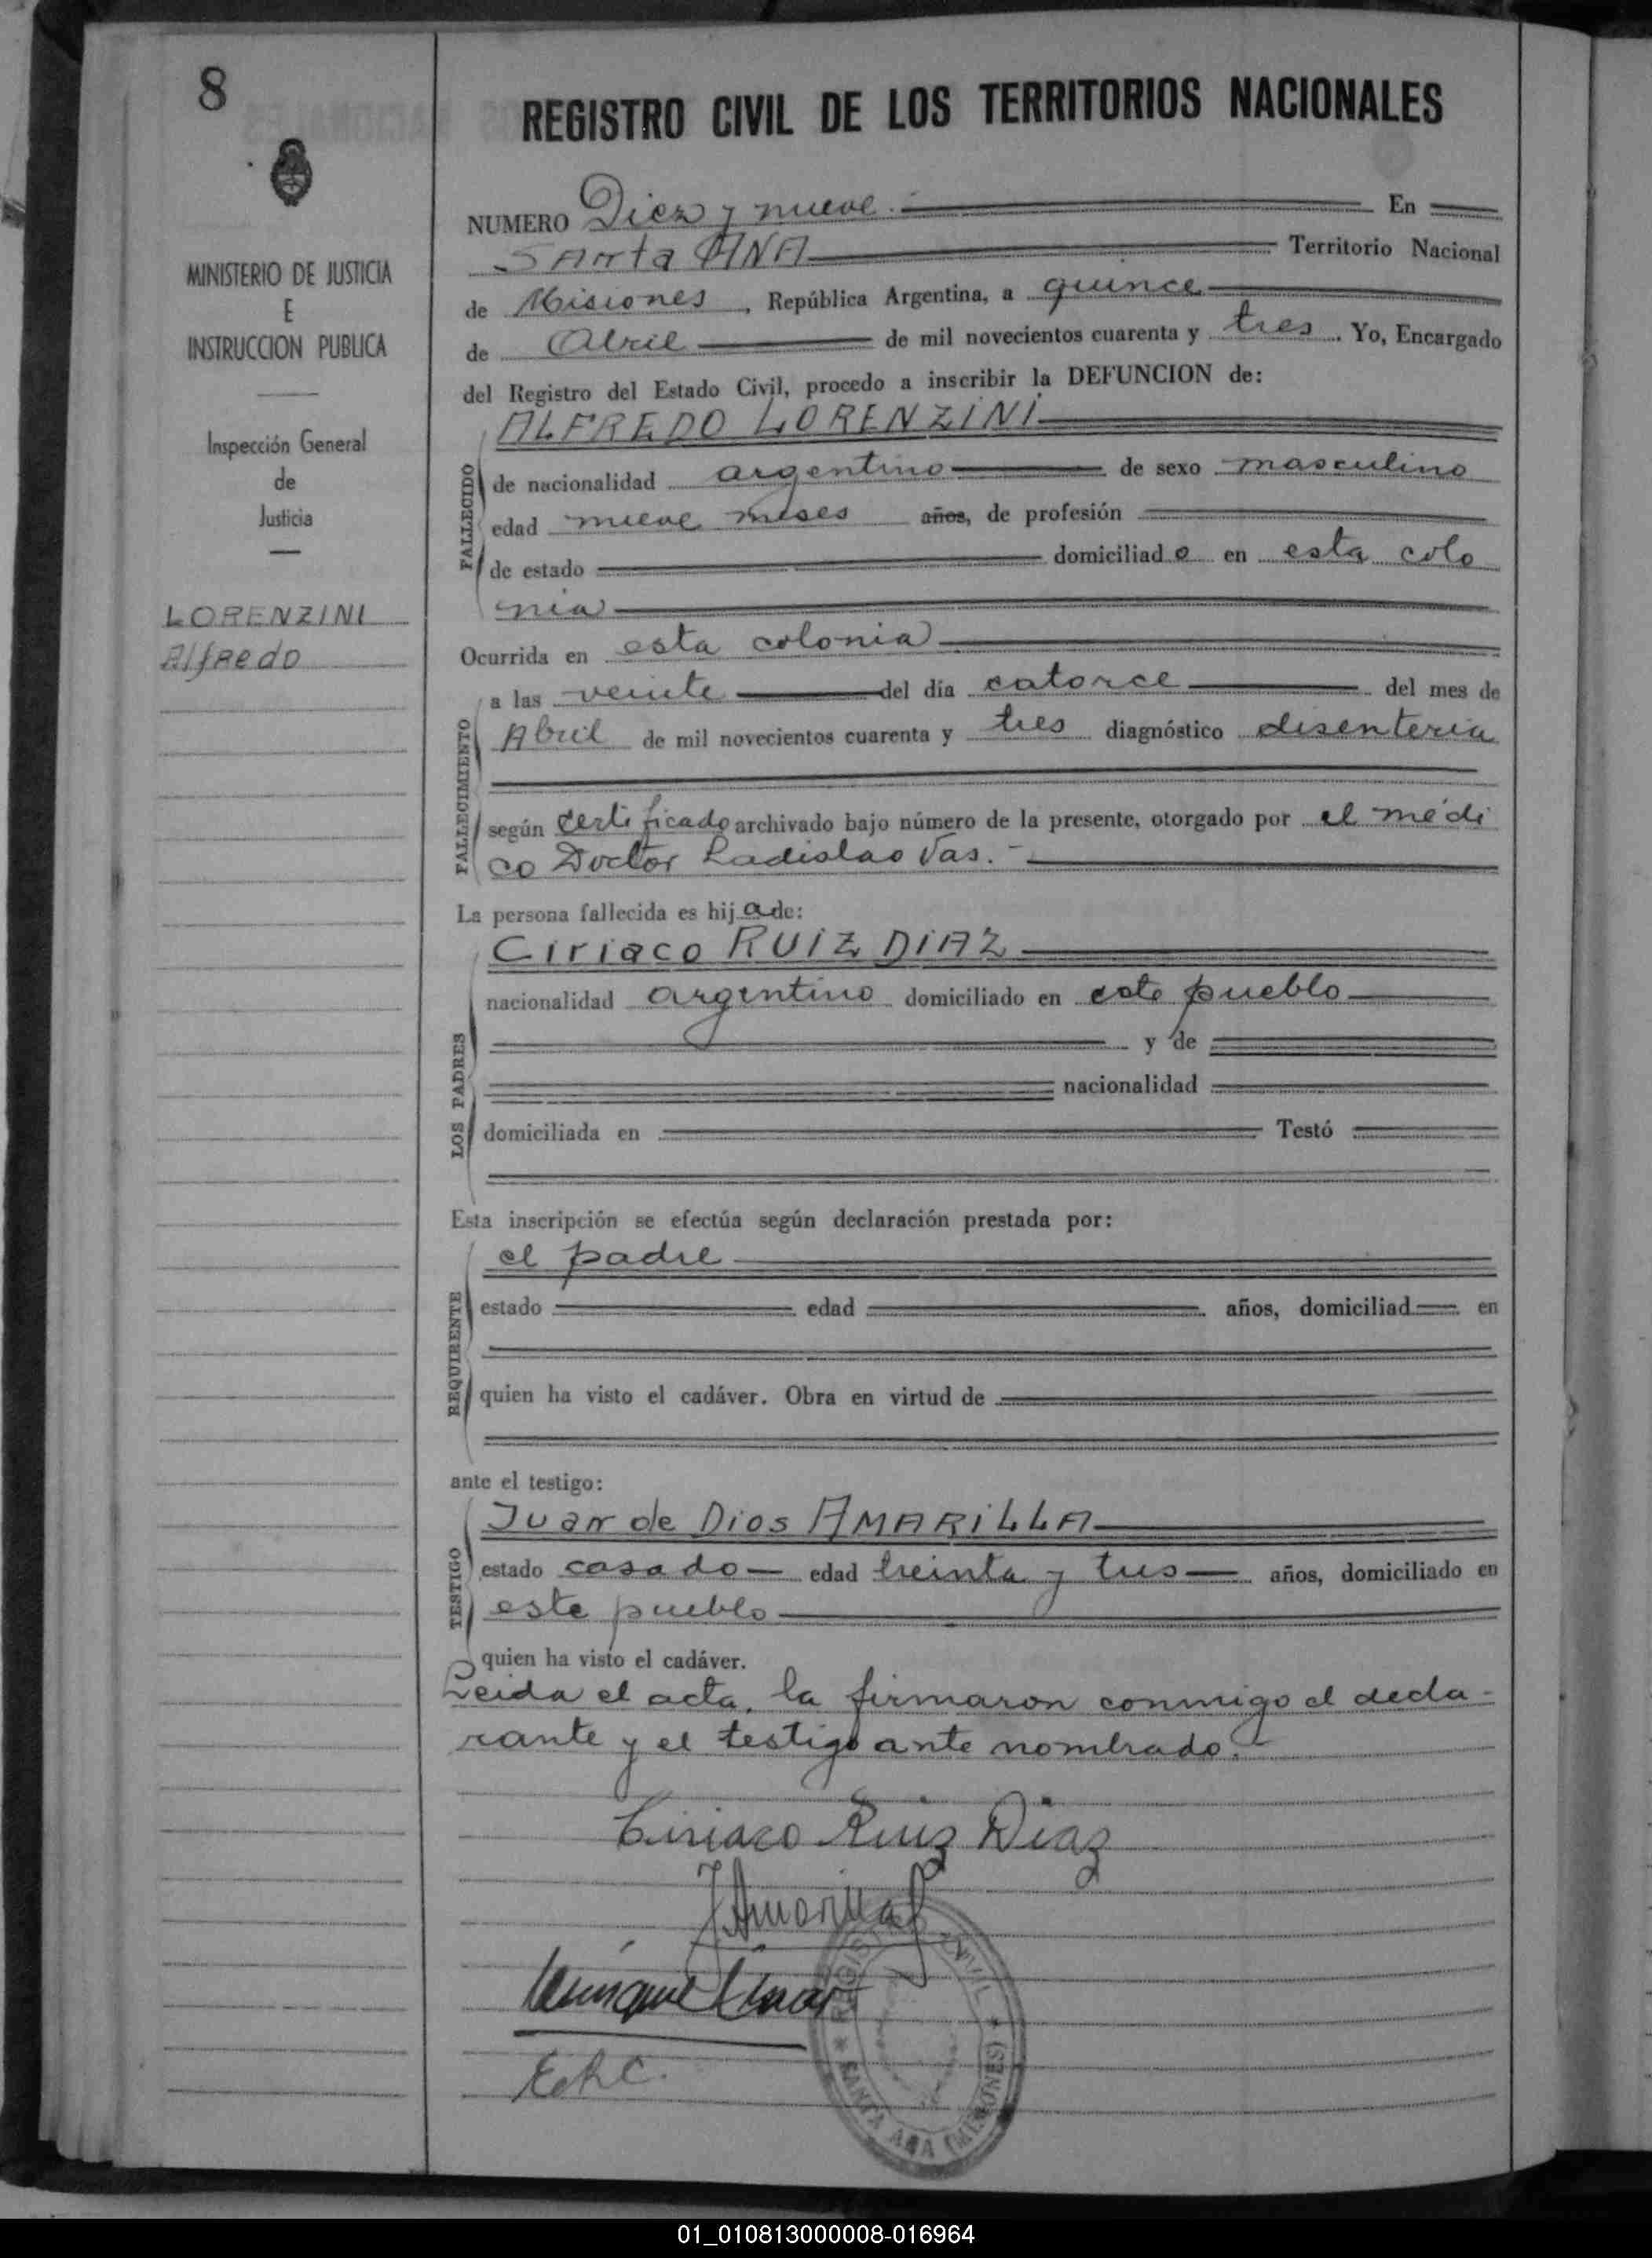 8
REGISTRO CIVIL DE LOS TERRITORIOS NACIONALES
MINISTERIO DE JUSTICIA
E
INSTRUCCION PUBLICA
Inspección General
de
Justicia
LORENZINI
Alfredo
NUMERO Diez y nueve. En
Santa ANA Territorio Nacional
de Misiones, República Argentina, a quince
de Abril de mil novecientos cuarenta y tres. Yo, Encargado
del Registro del Estado Civil, procedo a inscribir la DEFUNCION de:
FALLECIDO
ALFREDO LORENZINI
de nacionalidad argentino de sexo masculino
edad nueve meses años, de profesión
de estado domiciliado en esta colo
nia
Ocurrida en esta colonia
FALLECIMIENTO
a las veinte del día catorce del mes de
Abril de mil novecientos cuarenta y tres diagnóstico disenteria
según certificado archivado bajo número de la presente, otorgado por el médi
co Doctor Ladislao Vas.-
La persona fallecida es hija de:
LOS PADRES
Ciriaco RUIZ DIAZ
nacionalidad argentino domiciliado en este pueblo
y de
nacionalidad
domiciliada en Testó
Esta inscripción se efectúa según declaración prestada por:
REQUIRENTE
el padre
estado edad años, domiciliad en
quien ha visto el cadáver. Obra en virtud de
ante el testigo:
TESTIGO
Juan de Dios AMARILLA
estado casado edad treinta y tres años, domiciliado en
este pueblo
quien ha visto el cadáver.
Leida el acta, la firmaron conmigo el decla-
rante y el testigo ante nombrado.
Ciriaco Ruiz Diaz
J Amarilla
E.R.C.
REGISTRO CIVIL
SANTA ANA (MISIONES)
01_010813000008-016964